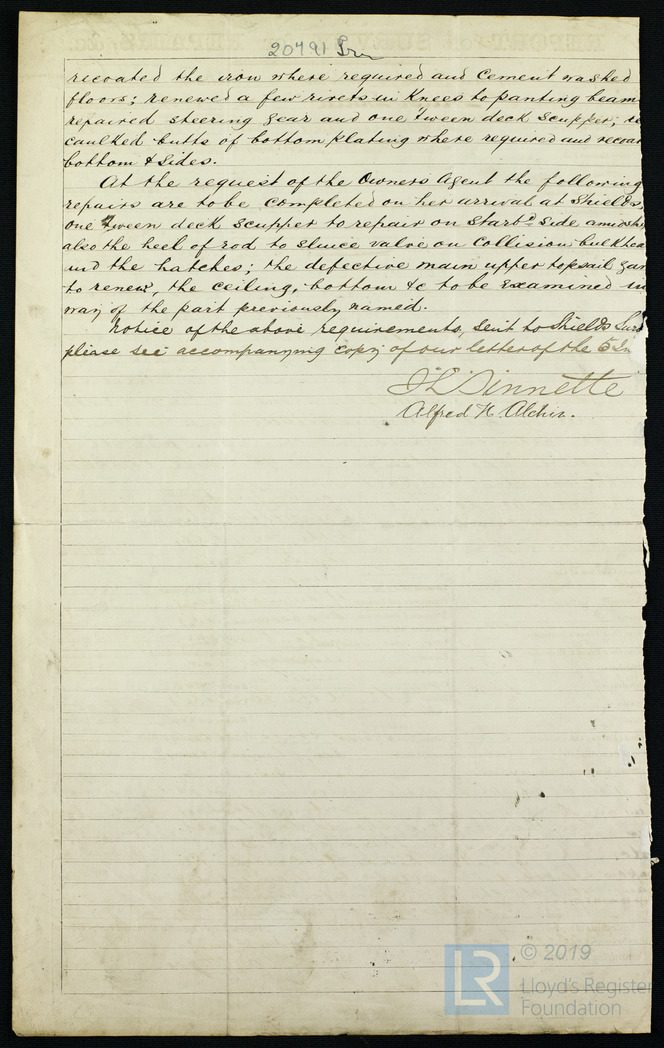 20791 Irn
recoated the iron where required and Cement washed
floors; renewed a few rivets in Knees to panting beam
repaired steering gear and one tween deck scupper; re
caulked butts of bottom plating where required and recoat
bottom & Sides.
At the request of the Owners Agent the following
repairs are to be completed on her arrival at Shields,
one Tween deck scupper to repair on Starbd side amidsh
also the heel of rod to sluice valve on Collision bulkhea
and the hatches; the defective main upper topsail yar
to renew, the ceiling, bottom &c to be examined in
way of the part previously named.
Notice of the above requirements, sent to Shields Sur
please see accompanying copy of our letter of the 5 In
J L Sinnette
Alfred H. Alchin.
© 2019
LR
Lloyd's Register
Foundation